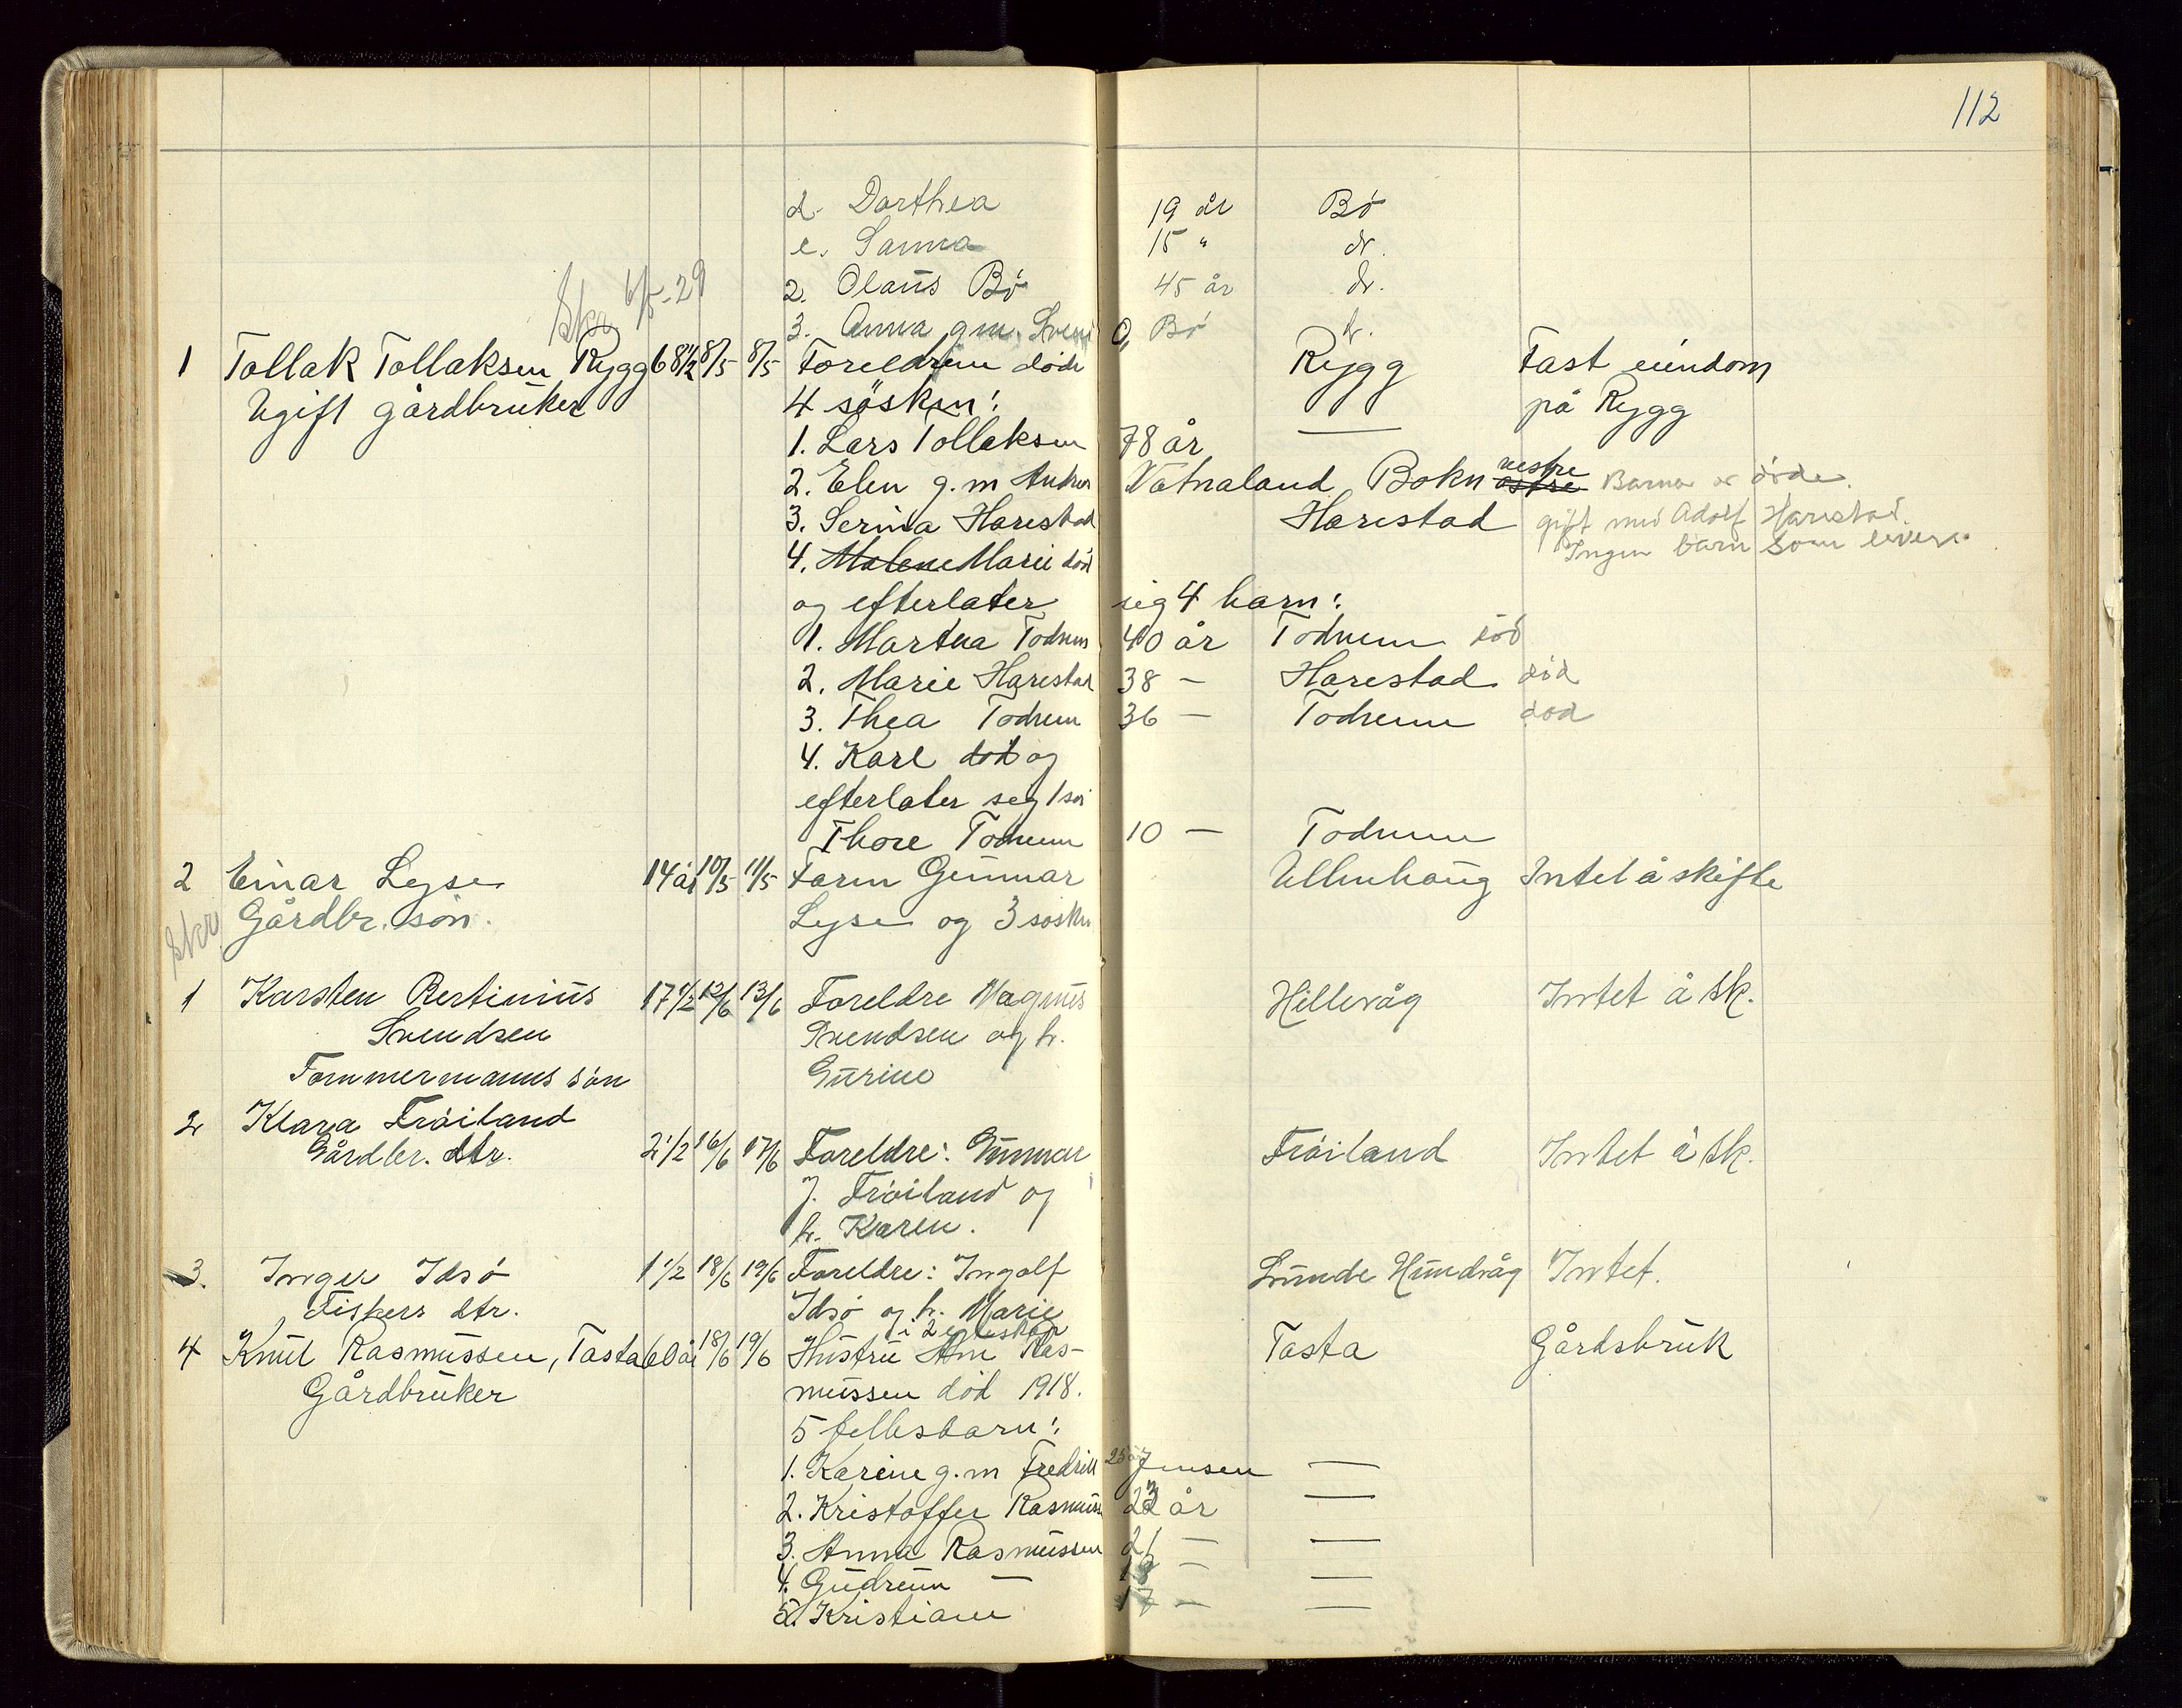 112
d. Dorthea 19 år Bö
e. Sanna 15 " do.
2. Olaus Bö 45 år do.
Skr 6/5-29
3. Anna g.m. Bö
1 Tollak Tollaksen Rygg 68 1/2 8/5 8/5 Foreldrene döde Rygg Fast eiendom
Ugift gårdbruker 4 sösken: på Rygg
1. Lars Tollaksen 78 år —
2. Elen g.m Andreas Vatnaland Bokn vestre östre Barna er döde.
3. Serina Harestad Harestad gift med Adolf Harestad.
Ingen barn som lever.
4. Malene Marie död
og efterlater sig 4 barn:
1. Martha Todnem 40 år Todnem död
2. Marie Harestad 38 — Harestad död
3. Thea Todnem 36 — Todnem död
4. Karl död og
efterlater seg 1 sön
Thore Todnem 10 — Todnem
2 Einar Lyse 14 år 10/5 11/5 Farm Gunnar Ullenhaug Intet å skifte
Skr Gårdbr. sön. Lyse og 3 søsken
1 Karsten Bertinius 17 1/2 12/6 13/6 Foreldre Magnus Hillevåg Intet å sk.
Svendsen Svendsen og h.
Tømmermanns sön Gurine
2 Klara Fröiland
Gårdbr. dtr. 2 1/2 16/6 17/6 Foreldre: Gunnar Fröiland Intet å sk.
J. Fröiland og
h. Karen.
3. Inger Idsö 1 1/2 18/6 19/6 Foreldre: Ingolf Lunde Hundvåg Intet.
Fiskers dtr. Idsö og h. Marie
i 2 ekteskap
4 Knut Rasmussen, Tasta 60 år 18/6 19/6 Hustru Ane Ras- Tasta Gårdsbruk
Gårdbruker mussen död 1918.
5 fellesbarn:
1. Karine g.m Fredrik 25 år Jensen —
2. Kristoffer Rasmussen 23 år —
3. Anna Rasmussen 21 — —
4. Gudrun — 18 — —
5. Kristiane 17 — —